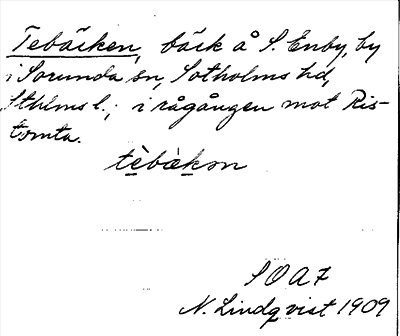 Tebäcken, bäck å S. Enby, by
i Sorunda sn, Sotholms hd,
Sthlms l.; i rågången mot Ris-
tomta.
tèbàkən
S O A F
N. Lindqvist 1909